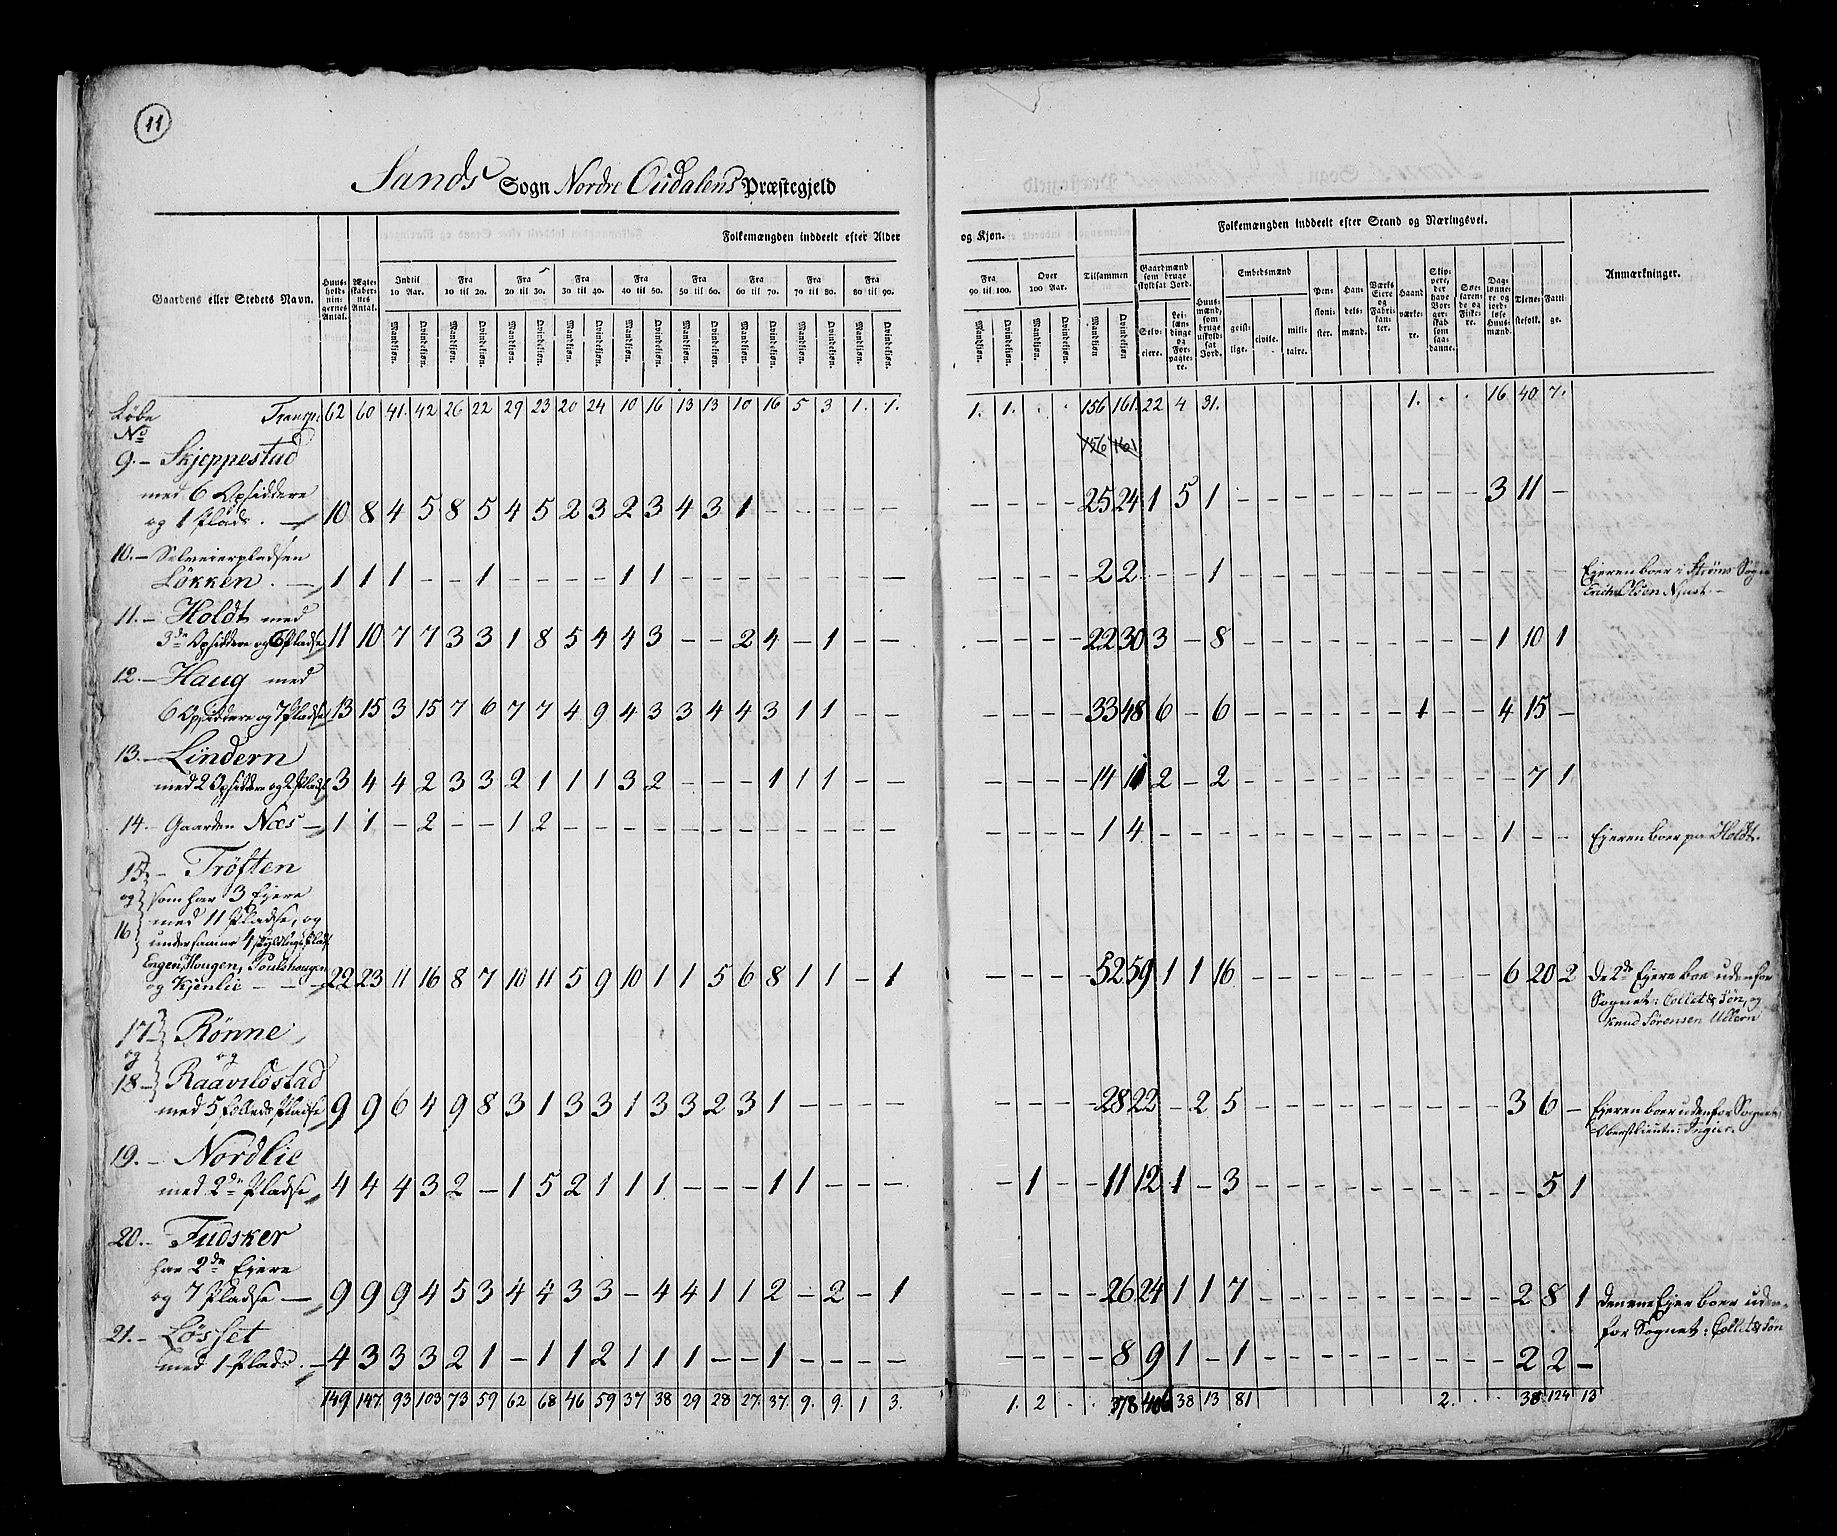 11
Sands Sogn Nordre Oudalens Præstegjeld
Folkemængden inddeelt efter Alder og Kjøn.
Folkemængden inddeelt efter Stand og Næringsvei.
Gaardens eller Stedets Navn.
Huus-holdningernes Antal.
Ægteskabernes Antal.
Indtil 10 Aar.
Fra 10 til 20.
Fra 20 til 30.
Fra 30 til 40.
Fra 40 til 50.
Fra 50 til 60.
Fra 60 til 70.
Fra 70 til 80.
Fra 80 til 90.
Fra 90 til 100.
Over 100 Aar.
Tilsammen
Mandkjøn. Qvindekjøn.
Gaardmænd som bruge skyldsat Jord.
Selveiere.
Leilændinge og Forpagtere.
Huusmænd, som bruge uskyldsat Jord.
Embedsmænd
geistlige. civile. militaire.
Pensionister.
Handelsmænd.
Værks Eiere og Fabrikanter.
Haandværkere.
Skippere, der have Borgerskab som saadanne.
Søefarende og Fiskere.
Daglønnere og jordløse Huusmænd.
Tjenestefolk.
Fattige.
Anmærkninger.
Løbe No Transp: 62 60 41. 42 26 22 29 23 20 24 10 16 13 13 10 16 5 3 1. 1. 1. 1. . . 156 161. 22 4 31. 1. . . 16 40 7.
156 161
9. – Skjeppestad
med 6 Opsiddere
og 1 Plads. – 10 8 4 5 8 5 4 5 2 3 2 3 4 3 1 – – – – – – – – – 25 24 1 5 1 – – – – – – – – – 3 11 –
10. – Selveierpladsen
Løkken. – 1 1 1 – – 1 – – – – 1 1 – – – – – – – – – – – – 2 2 – – 1 – – – – – – – – – – – – Ejeren boer i Strøms Sogn
Erich Olsen Njust. –
11. – Holdt med
3de Opsiddere og 6 Pladse 11 10 7 7 3 3 1 8 5 4 4 3 – – 2 4 – 1 – – – – – – 22 30 3 – 8 – – – – – – – – – 1 10 1
12. – Haug med
6 Opsiddere og 7 Pladse 13 15 3 15 7 6 7 7 4 9 4 3 3 4 4 3 1 1 – – – – – – 33 48 6 – 6 – – – – – – 1 – – 4 15 –
13. – Lindern
med 2 Opsiddere og 2 Pladse 3 4 4 2 3 3 2 1 1 1 3 2 – – – 1 1 1 – – – – – – 14 11 2 – 2 – – – – – – – – – – 7 1
14 – Gaarden Næs – 1 1 – 2 – – 1 2 – – – – – – – – – – – – – – – – 1 4 – – – – – – – – – – – – 1 – – Ejeren boer paa Holdt.
15 – Trøften
og som har 3 Ejere
16 med 11 Pladse, og
under samme 4 skyldlagte Plads
Engen, Hougen, Poulshougen
og Kjenlie – – – 22 23 11 16 8 7 10 11 5 9 10 1 1 5 6 8 1 1 – 1 – – – – 52 59 1 1 16 – – – – – – – – – 6 20 2 De 2de Ejere boe udenfor
Sognet: Collet & Søn, og
Knud Sørensen Ullern
17 – Rønne
og og
18 – Raavildstad
med 5 fælleds Pladse 9 9 6 4 9 8 3 1 3 3 1 3 3 2 3 1 – – – – – – – – 28 22 – 2 5 – – – – – – – – – 3 6 – Ejeren boer udenfor Sognet,
Oberstlieutn: Ingier.
19. – Nordlie
med 2de Pladse 4 4 4 3 2 – 1 5 2 1 1 1 – – – 1 1 – – – – 1 – – 11 12 1 – 3 – – – – – – – – – – 5 1
20. – Fudsker
har 2de Ejere
og 7 Pladse – 9 9 9 4 5 3 4 4 3 3 – 4 4 1 1 2 – 2 – 1 – – – – 26 24 1 1 7 – – – – – – – – – 2 8 1 Den ene Ejer boer uden-
for Sognet: Collet & Søn
21. – Løsset
med 1 Plads. – 4 3 3 3 2 1 – 1 1 2 1 1 1 – – 1 – – – – – – – – 8 9 1 – 1 – – – – – – – – – 2 2 –
149 147 93 103 73 59 62 68 46 59 37 38 29 28 27. 37. 9. 9. 1 3. 1. 2 . . 378 406 38 13 81 2. . . 38 124 13